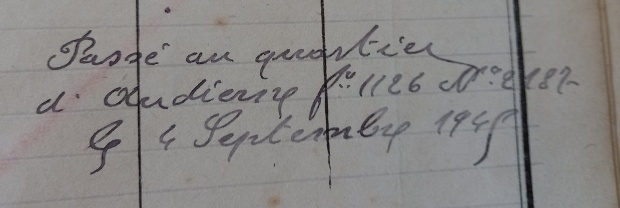 Passé au quartier
d'Audierne fº 1126 Nº 2187
le 4 Septembre 1945